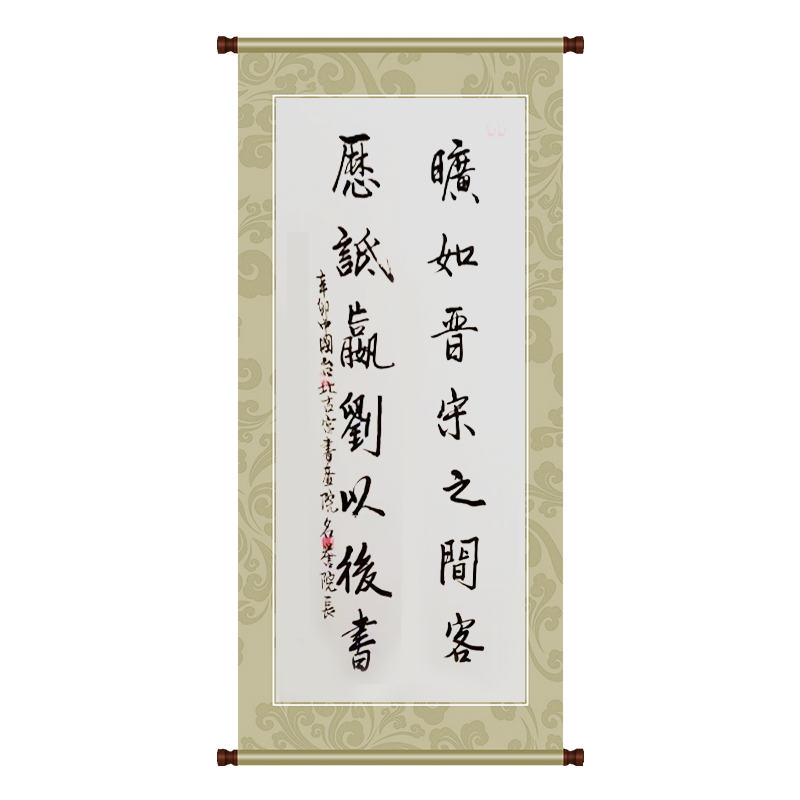 曠如晋宋之間客
歷詆嬴劉以後書
辛卯中國台北古宮書畫院名譽院長